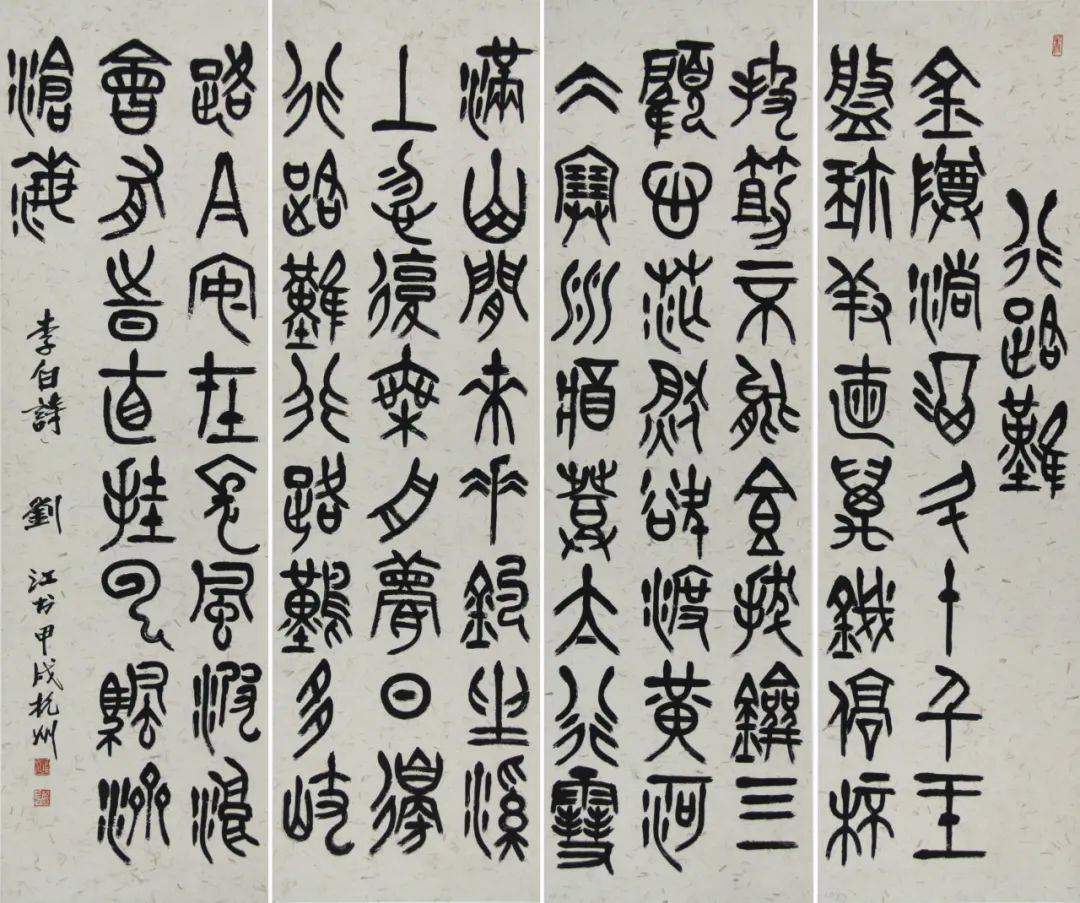 行路難
金樽清酒斗十千玉
盤珍羞直萬錢停杯
投箸不能食拔劍四
顧心茫然欲渡黃河
冰塞川將登太行雪
滿山閒來垂釣坐溪
上忽復乘舟夢日邊
行路難行路難多岐
路今安在長風破浪
會有時直挂雲帆濟
滄海
李白詩 劉江書甲戌杭州